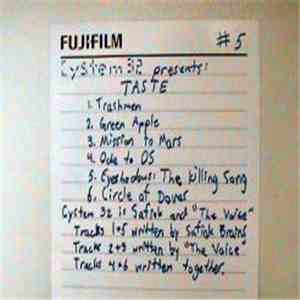 FUJIFILM #5
Cystem 32 presents:
TASTE
1. Trashmen
2. Green Apple
3. Mission to Mars
4. Ode to OS
5. Eyeshadows: The Killing Song
6. Circle of Doves
Cystem 32 is Safisk and "The Voice"
Tracks 1+5 written by Safisk Brains
Tracks 2+3 written by "The Voice"
Tracks 4+6 written together.